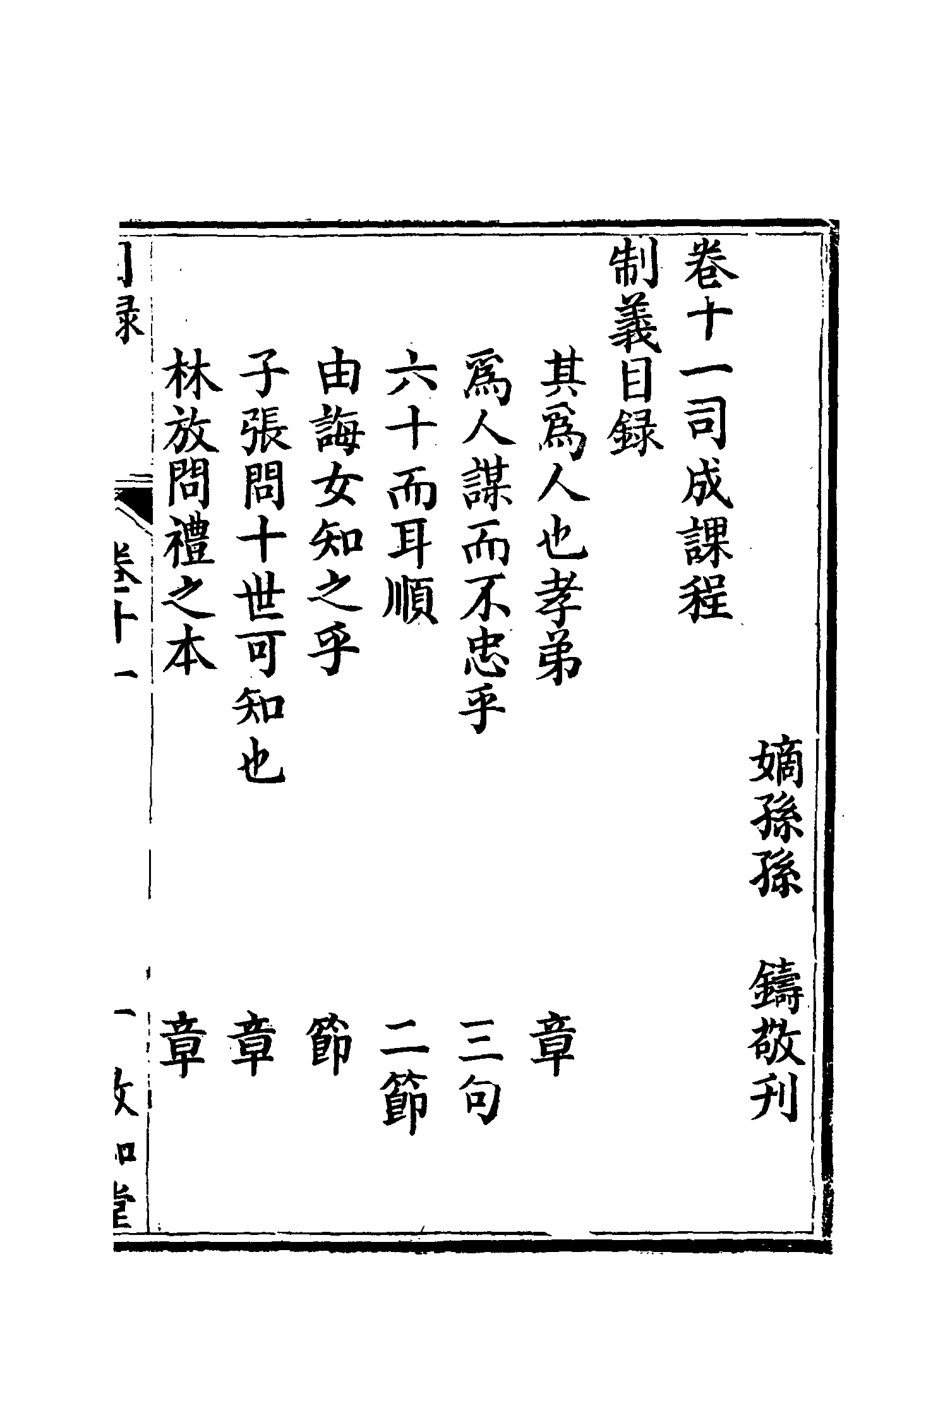 嫡孫孫　鑄敬刋
卷十一司成課程
制義目録
其爲人也孝弟　章
爲人謀而不忠乎　三句
六十而耳順　二節
由誨女知之乎　節
子張問十世可知也　章
林放問禮之本　章
目録　卷十一　一